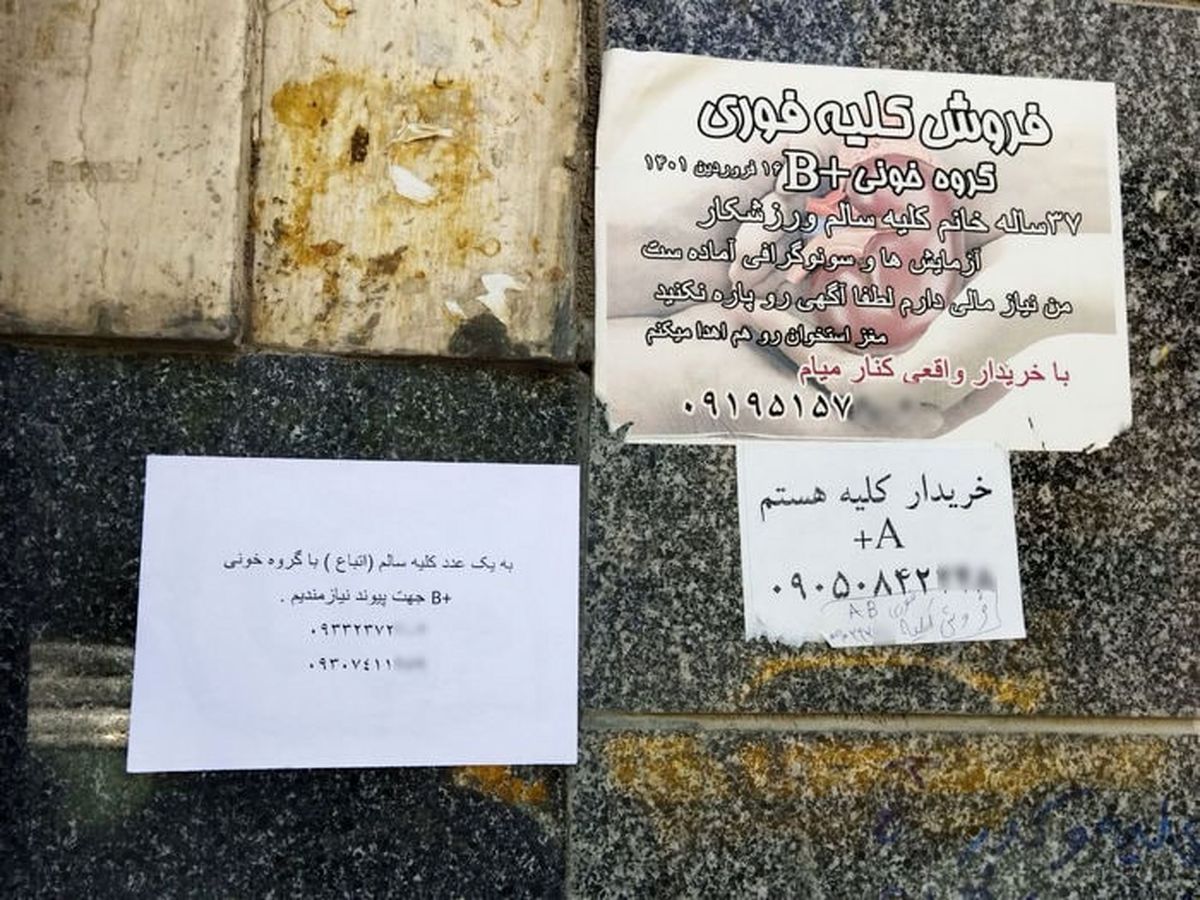 فروش کلیه فوری
گروه خونی +B ۱۶ فروردین ۱۴۰۱
۳۷ساله خانم کلیه سالم ورزشکار
آزمایش ها و سونوگرافی آماده ست
من نیاز مالی دارم لطفا آگهی رو پاره نکنید
مغز استخوان رو هم اهدا میکنم
با خریدار واقعی کنار میام
۰۹۱۹۵۱۵۷
خریدار کلیه هستم
+A
۰۹۰۵۰۸۴۲
فروش کلیه فوری AB
به یک عدد کلیه سالم (اتباع ) با گروه خونی
+B جهت پیوند نیازمندیم .
۰۹۳۳۲۳۷۲
۰۹۳۰۷٤۱۱